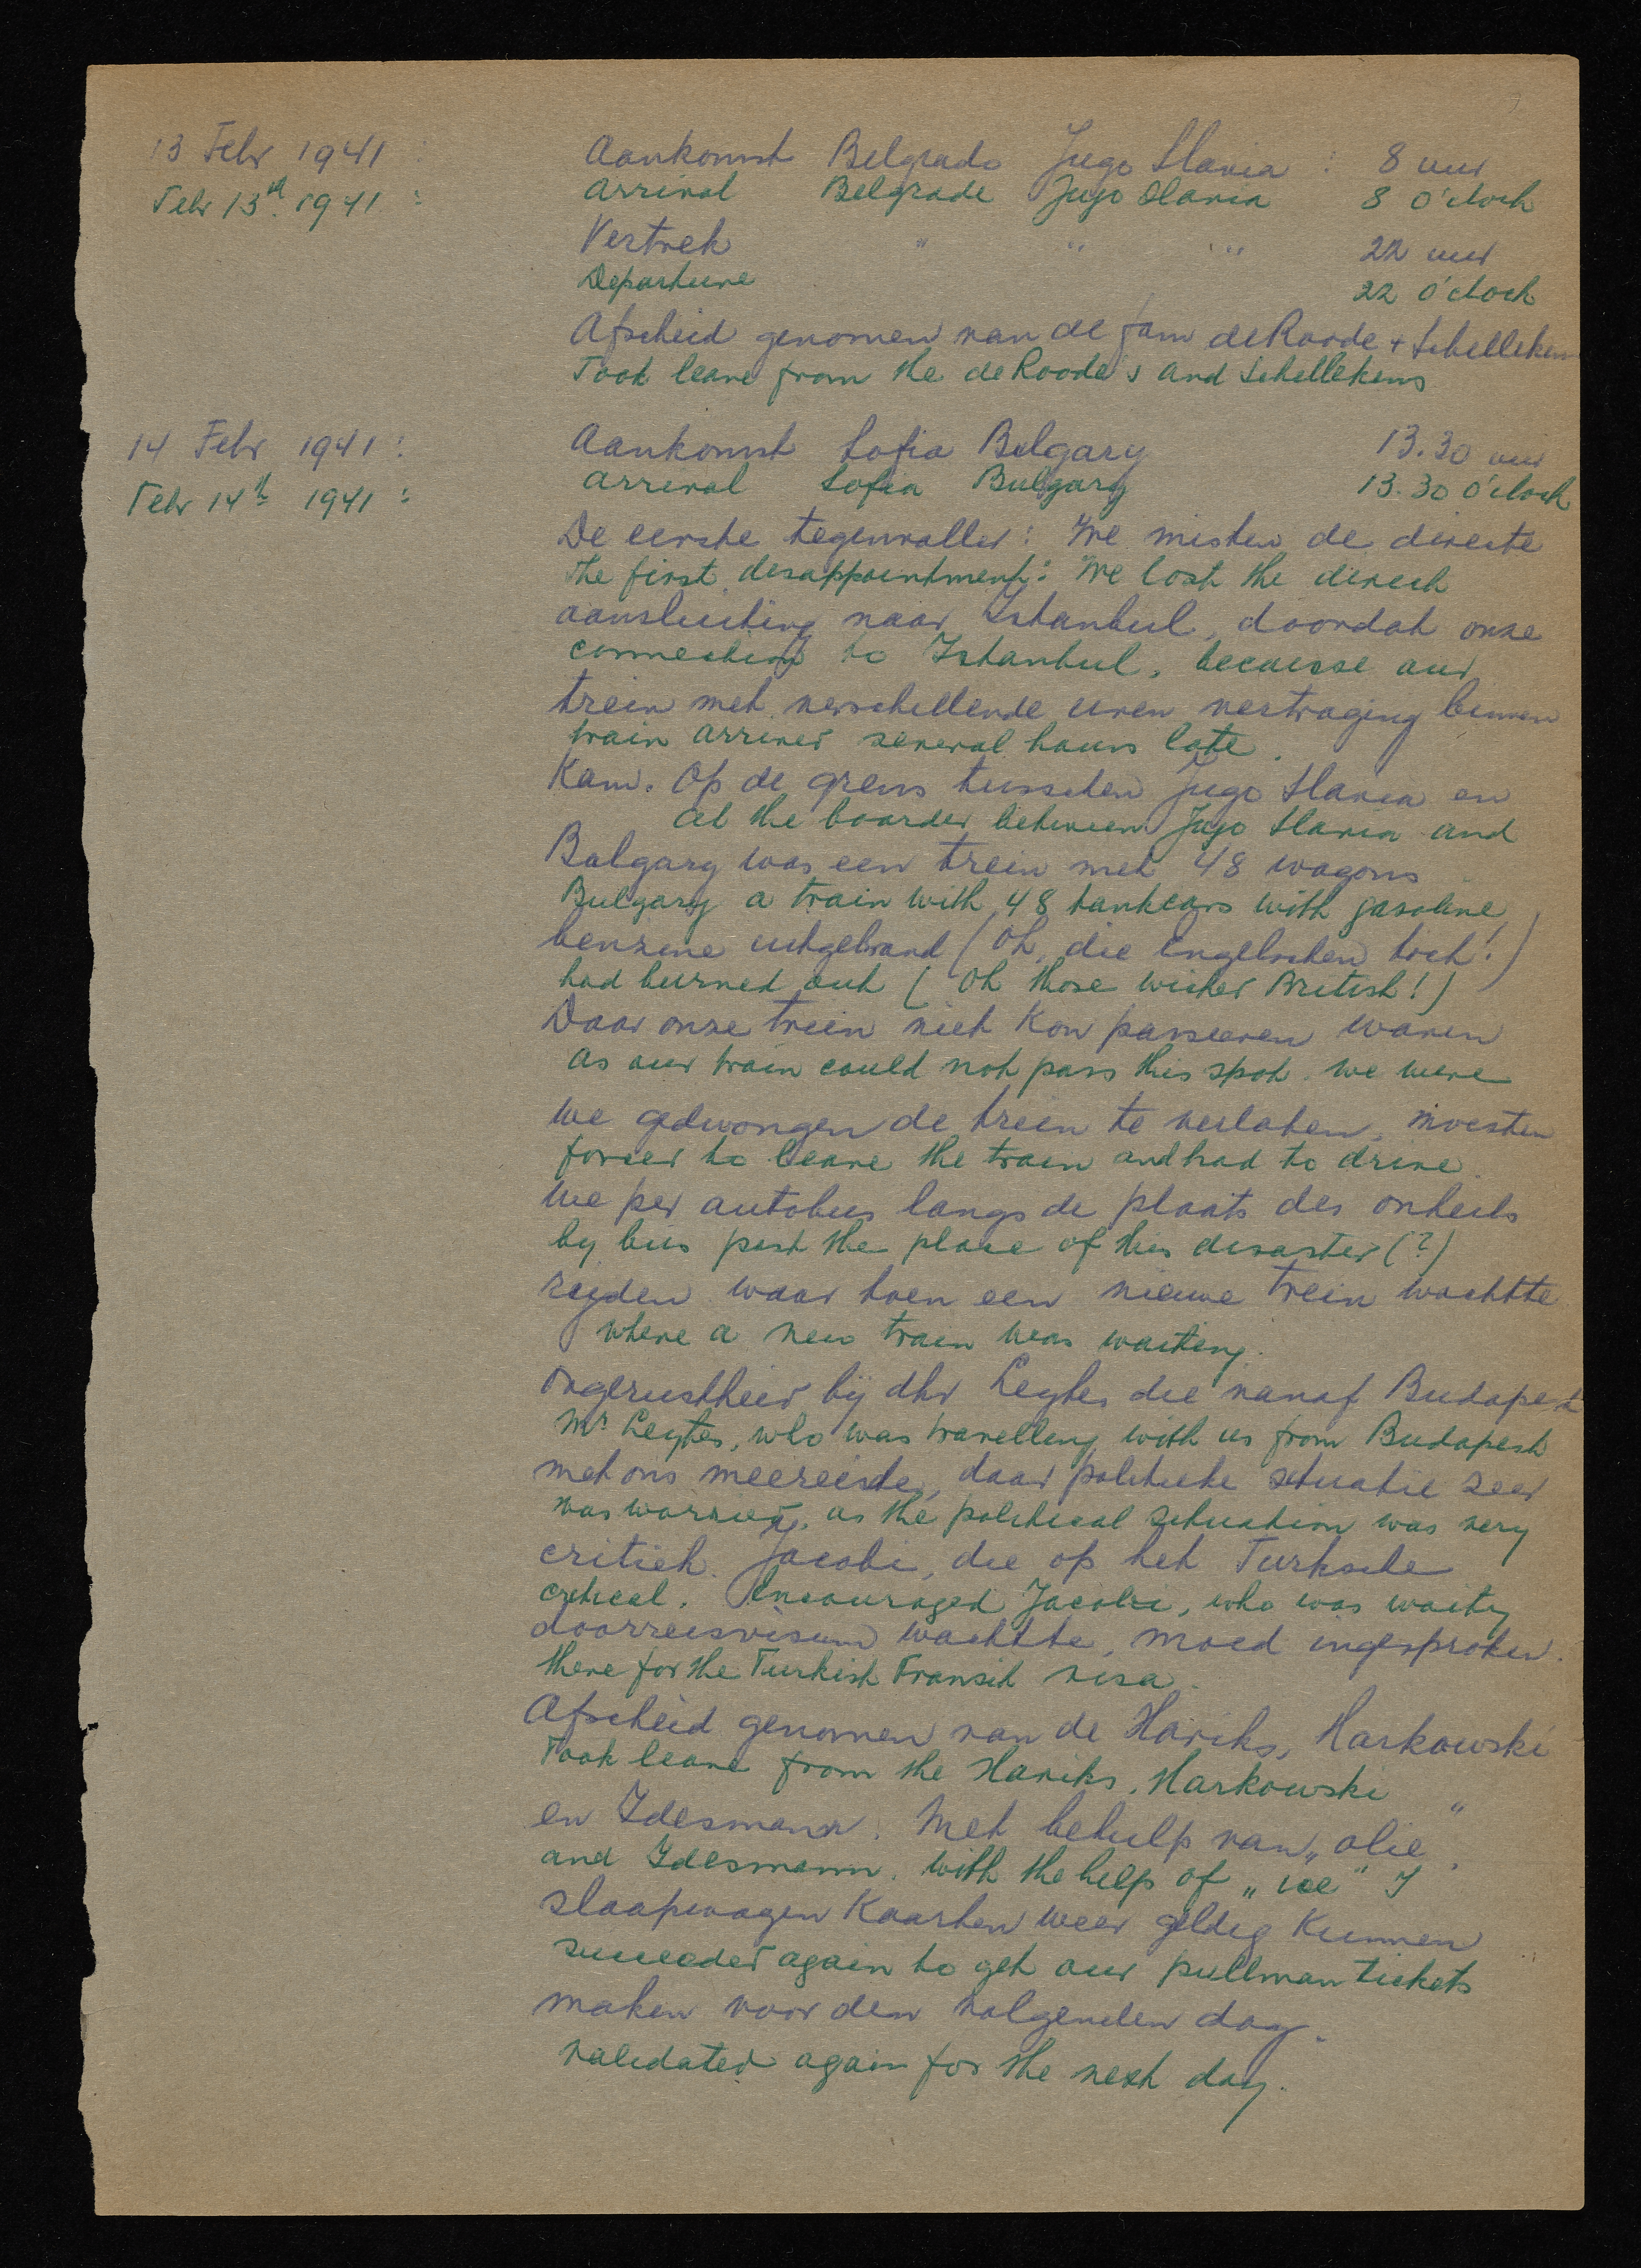 13 Febr 1941 : Aankomst Belgrado Jugo Slavia : 8 uur
Febr 13th 1941 : Arrival Belgrade Jugo Slavia 8 o'clock
Vertrek " " " 22 uur
Departure 22 o'clock
Afscheid genomen van de fam de Roode + Schellekens
Took leave from the de Roode's and Schellekens
14 Febr 1941 : Aankomst Sofia Bulgary 13.30 uur
Febr 14th 1941 : Arrival Sofia Bulgary 13.30 o'clock
De eerste tegenvaller : We misten de directe
The first desappointment : We lost the direct
aansluiting naar Istanbul, doordat onze
connection to Istanbul, because our
trein met verschillende uren vertraging binnen
train arrived several hours late.
kam. Op de grens tusschen Jugo Slavia en
At the boarder between Jugo Slavia and
Bulgary was een trein met 48 wagons
Bulgary a train with 48 tankcars with gasoline
benzine uitgebrand (Oh, die Engelschen toch!)
had burned out (Oh those wicked British!)
Daar onze trein niet kon passeeren waren
As our train could not pass this spot. we were
we gedwongen de trein te verlaten, moesten
forced to leave the train and had to drive
we per autobus langs de plaats des onheils
by bus past the place of this disaster (?)
reyden waar toen een nieuwe trein wachtte
where a new train was waiting.
Ongerustheid bij dhr Leytes die vanaf Budapest
Mr Leytes, who was travelling with us from Budapest
met ons meereisde, daar politieke situatie zeer
was worried, as the political situation was very
critiek. Jacobi, die op het Turksche
critical. Encouraged Jacobi, who was waiting
doorreisvisum wachtte, moed ingesproken.
there for the Turkish Transit visa.
Afscheid genomen van de Hariks, Markowski
Took leave from the Hariks, Markowski
en Idesmann. Met behulp van „olie"
and Idesmann. With the help of „ice" I
slaapwagen kaarten weer geldig kunnen
succeeded again to get our pullman tickets
maken voor den volgenden dag.
validated again for the next day.